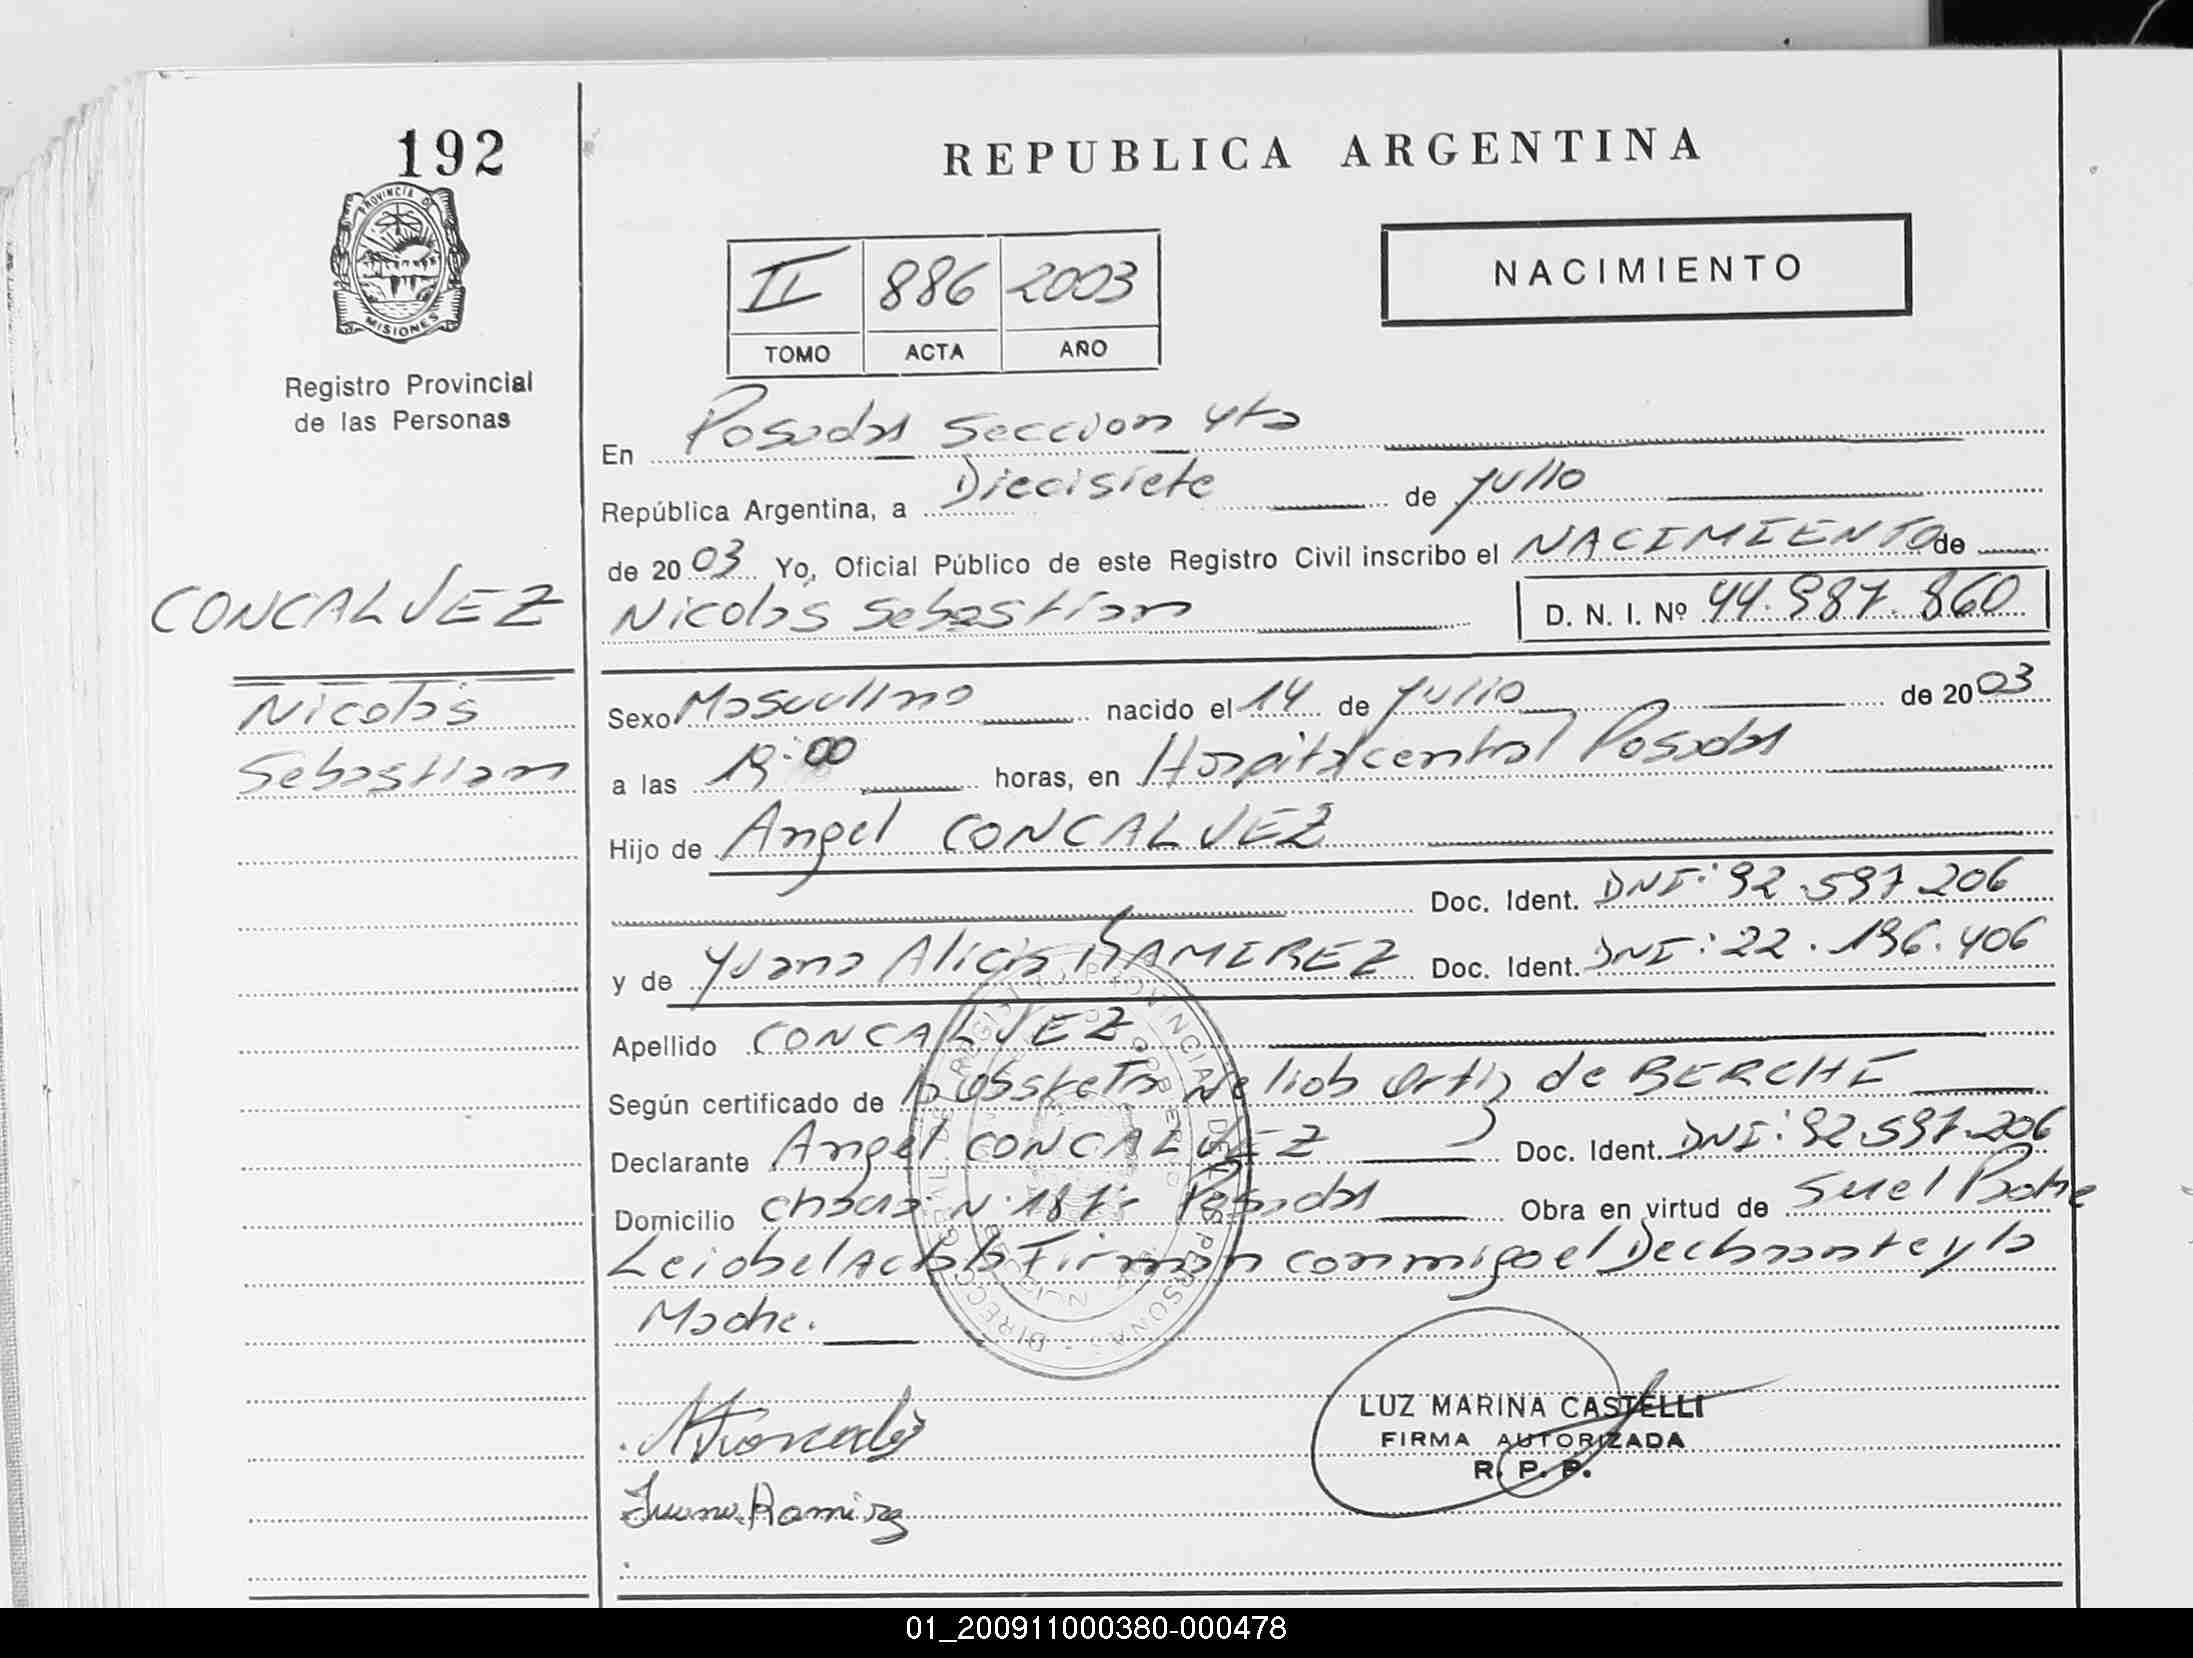 192
REPUBLICA ARGENTINA
PROVINCIA D
MISIONES
Registro Provincial
de las Personas
II 886 2003
TOMO ACTA AÑO
NACIMIENTO
En Posadas Seccion 4ta
República Argentina, a Diecisiete de julio
de 2003 Yo, Oficial Público de este Registro Civil inscribo el NACIMIENTO de
CONCALVEZ
Nicolás Sebastian D. N. I. Nº 44.987.860
Nicolás
Sebastian
Sexo Masculino nacido el 14 de julio de 2003
a las 19:00 horas, en Hospital central Posadas
Hijo de Angel CONCALVEZ
Doc. Ident. DNI: 92.597.206
y de Yuana Alicia RAMIREZ Doc. Ident. DNI: 22.196.406
Apellido CONCALVEZ
Según certificado de la Obstetra Ortiz de BERCHE
Declarante Angel CONCALVEZ Doc. Ident. DNI: 92.597.206
Domicilio chacra N° 187- Posadas Obra en virtud de Ser el Padre
Leida el Acta la Firman conmigo el Declarante y la
Madre.
LUZ MARINA CASTELLI
FIRMA AUTORIZADA
R. P. P.
Juana Ramirez
01_200911000380-000478